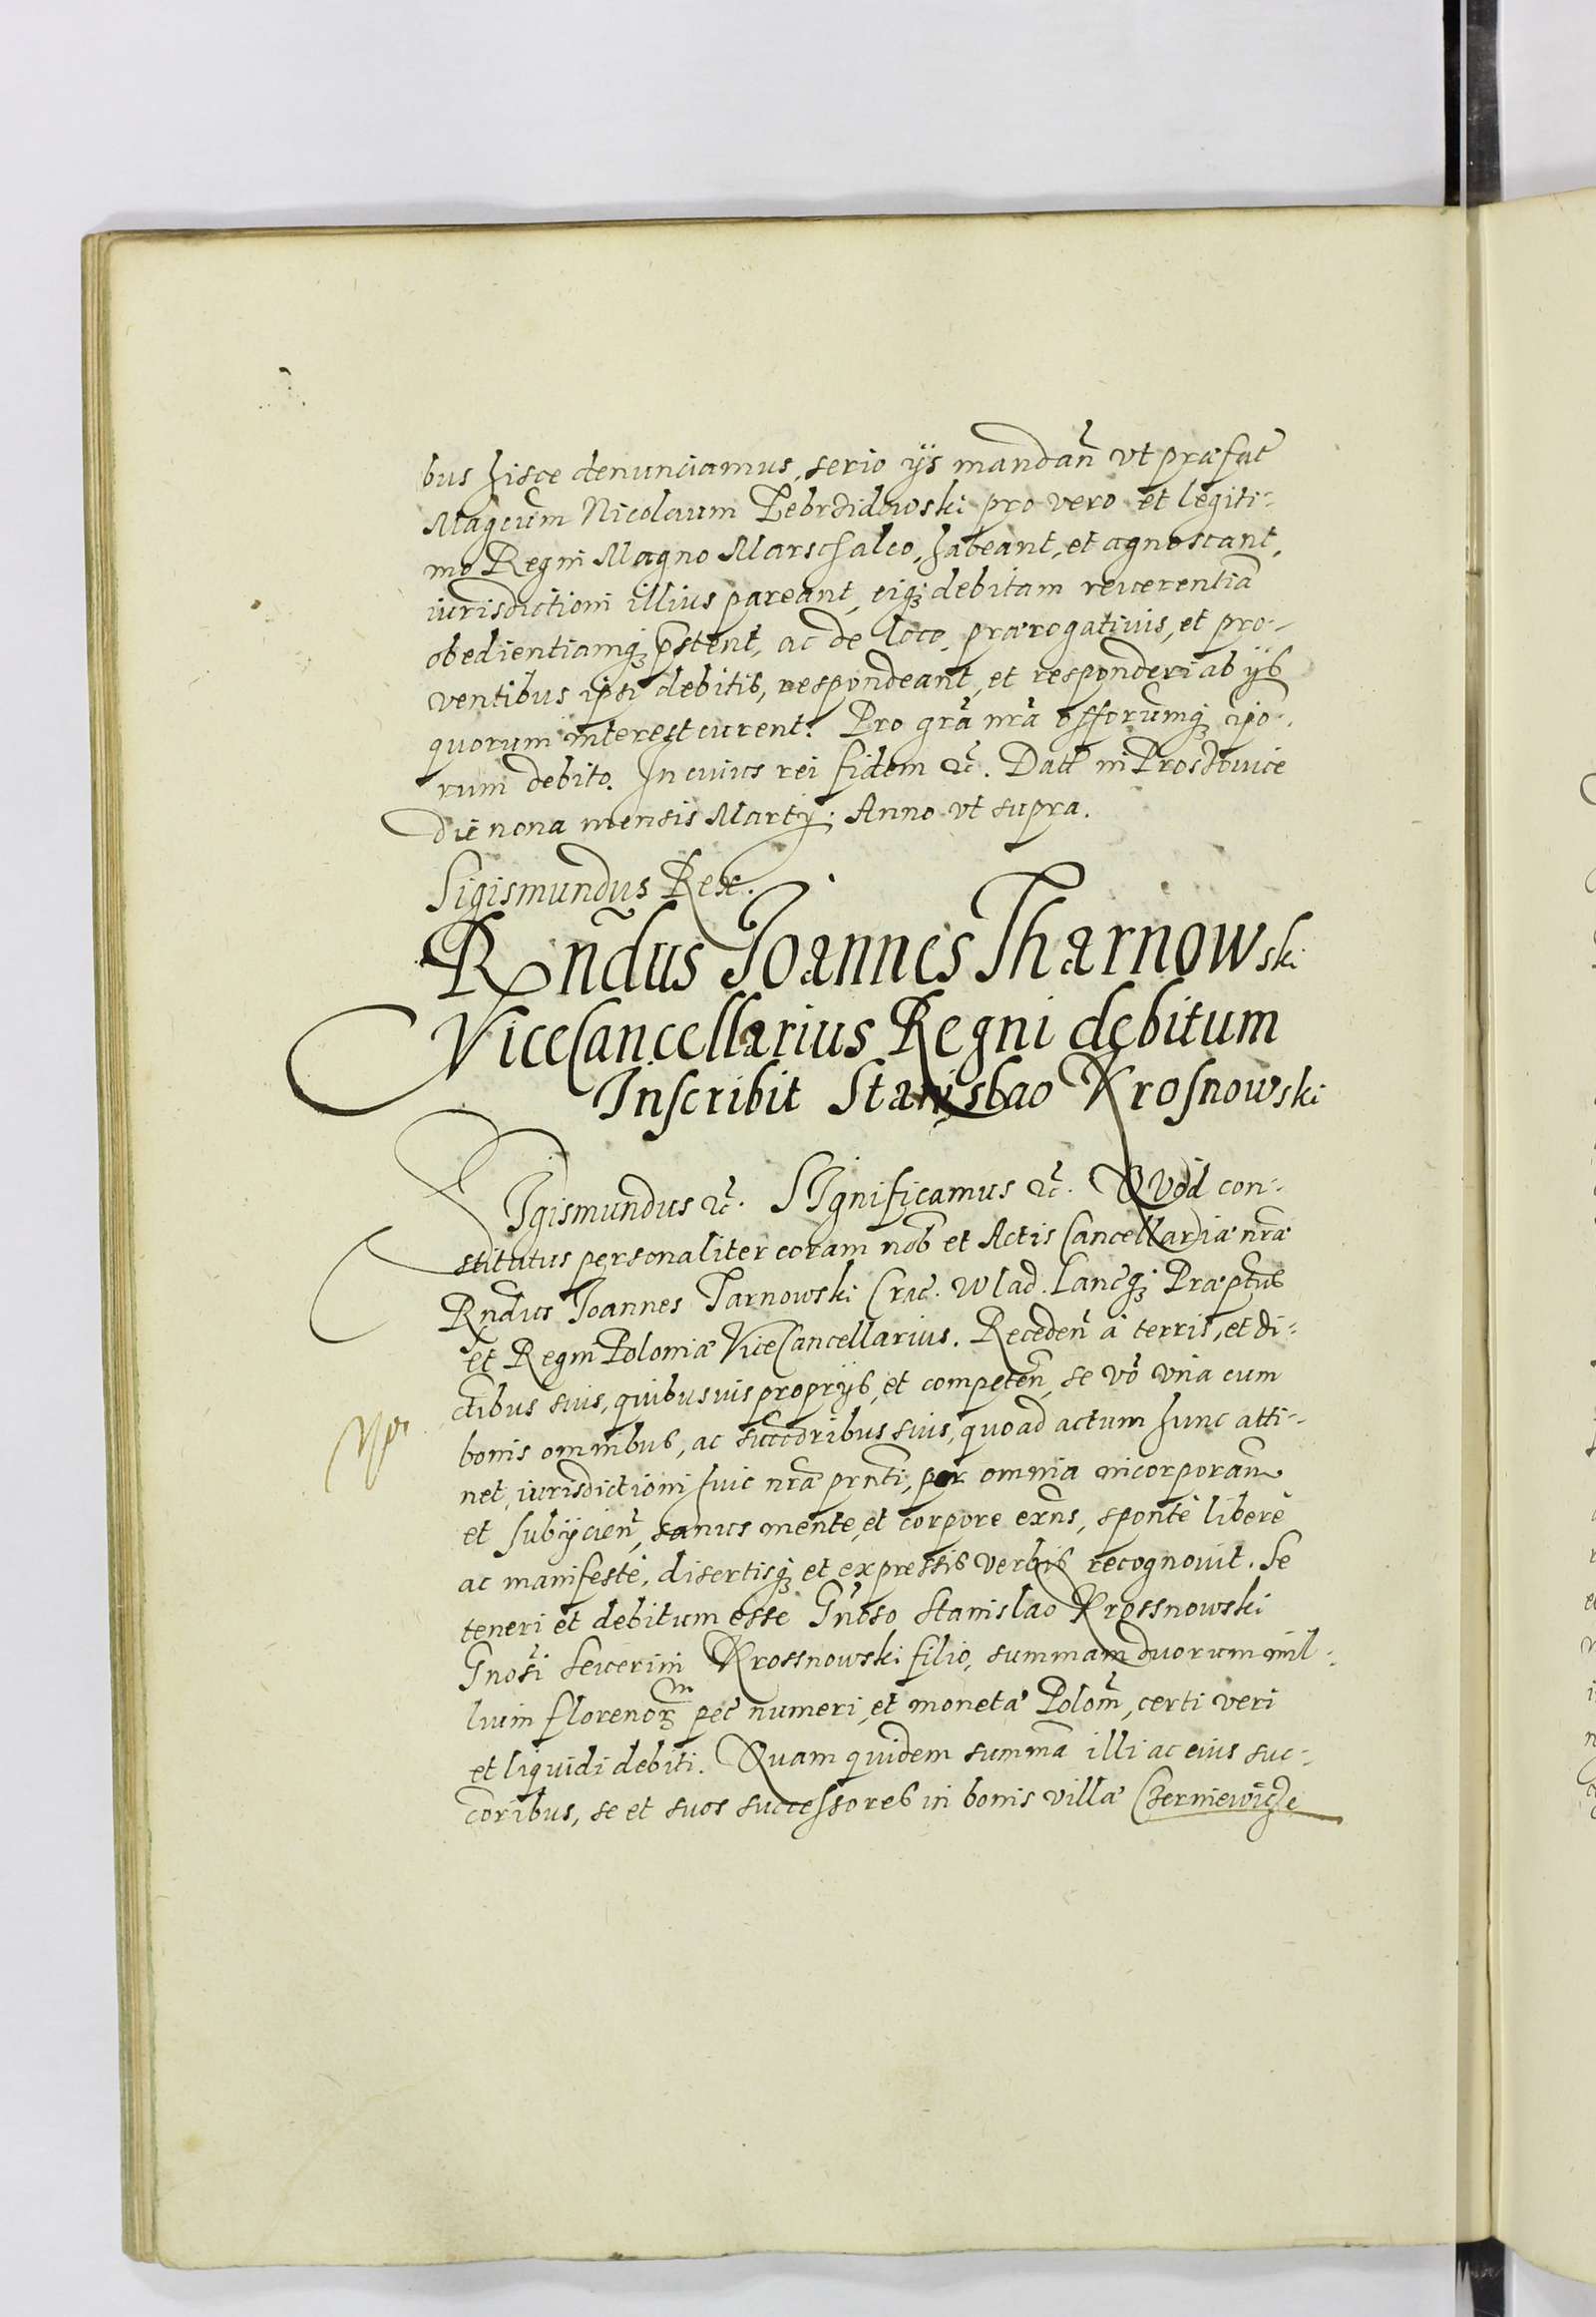 bus hisce denunciamus, serio ijs mandan̄ vt præfat̄
Magcūm Nicolaum Zebrzidowski pro vero et legiti-
mo Regni Magno Marschalco, habeant, et agnoscant,
iurisdictioni illius pareant, eiqꝫ debitam reverentiā
obedientiamqꝫ p̄stent, ac de loco, prærogativis, et pro-
ventibus ipsi debitis, respondeant, et responderi ab ijs
quorum interest curent. Pro grā nrā offorumqꝫ ipo-
rum debito. In cuius rei fidem &c. Dat̄ in Proszowice
die nona mensis Martij. Anno vt supra.
Sigismundus Rex.
Rn̄dus Joannes Tharnowski
ViceCancellarius Regni debitum
Inscribit Stanislao Krosnowski
SIgismundus &c. SIgnificamus &c. QVod con-
stitutus personaliter coram nob̄ et Actis Cancellariæ nrǣ
Rndus Joannes Tarnowski Crac̄. Wlad. Lanc̄qꝫ Præptūs
et Regni Poloniæ ViceCancellarius. Receden̄ à terris, et di-
ctibus suis, quibusuis proprijs, et competen̄, se vō vnà cum
bonis omnibus, ac succoribus suis, quoad actum hunc atti-
net, iurisdictioni huic nrǣ prnti, per omnia incorporan̄
et subijcien̄, sanus mente, et corpore exn̄s, spontè liberè
ac manifestè, disertisqꝫ et expressis verbis recognovit. Se
teneri et debitum esse Gn̄oso Stanislao Krossnowski
Gnosī Severini Krossnowski filio, summam duorum mil-
lium florenorꝫ pec̄ numeri, et monetæ Polon̄, certi veri
et liquidi debiti. Quam quidem summā illi ac eius suc-
coribus, se et suos successores in bonis villæ Czerniewicze